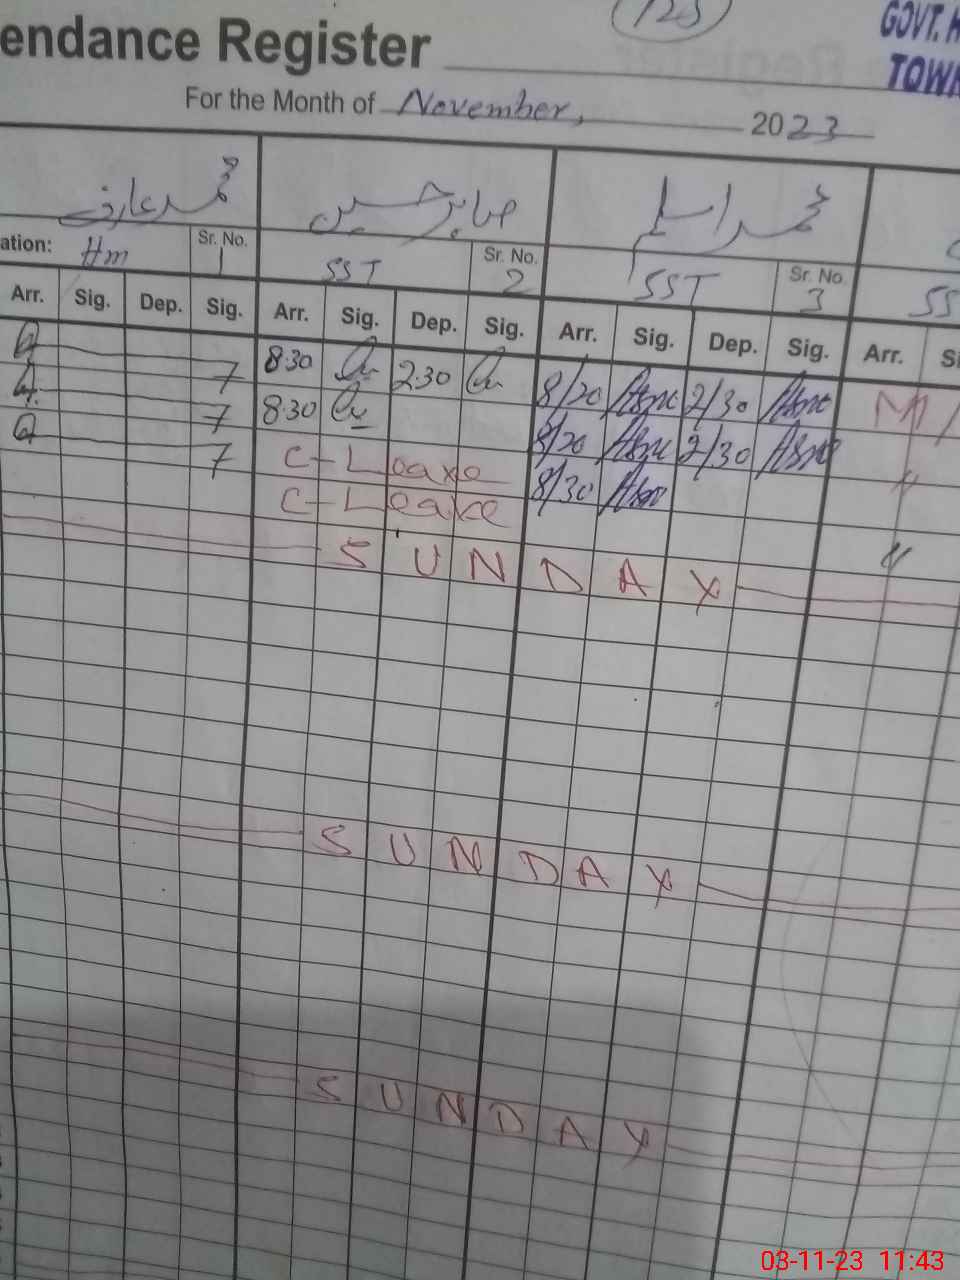 endance Register
125
GOVT. H
TOWN
For the Month of November, 2023
محمد عارف
صابر حسین
محمد اسلم
ation: Hm Sr. No. 1
SST Sr. No. 2
SST Sr. No. 3
SS
Arr. Sig. Dep. Sig. Arr. Sig. Dep. Sig. Arr. Sig. Dep. Sig. Arr. Si
8:30 2:30 8/20 2/30
8:30 8/20 2/30
C-Leave 8/30
C-Leave
SUNDAY
SUNDAY
SUNDAY
03-11-23 11:43